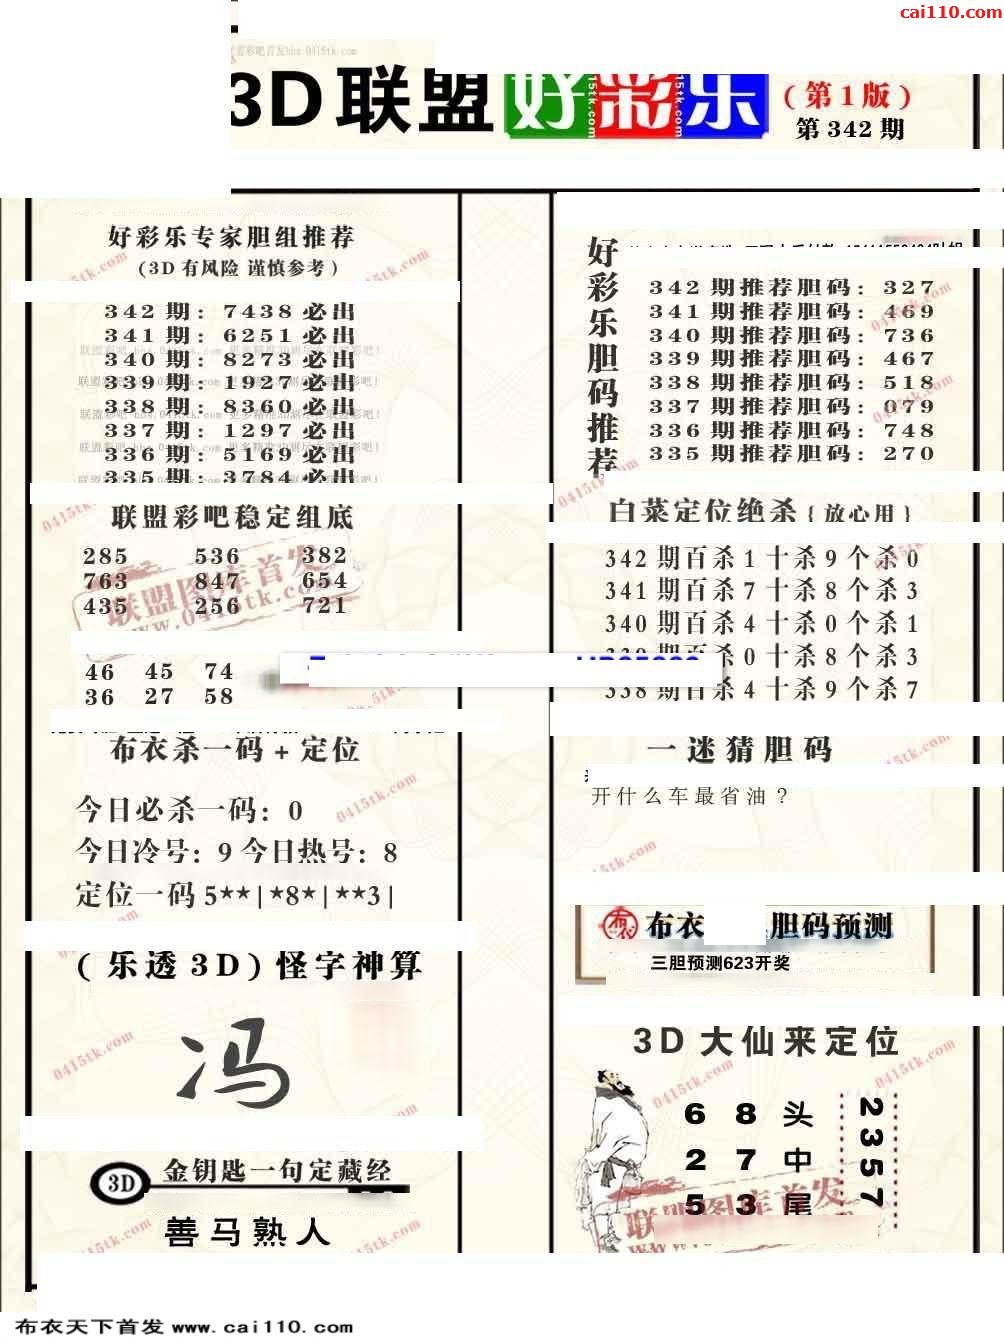 cai110.com
3D联盟 好彩乐
(第1版)
第342期
好彩乐专家胆组推荐
(3D有风险 谨慎参考)
342期: 7438必出
341期: 6251必出
340期: 8273必出
339期: 1927必出
338期: 8360必出
337期: 1297必出
336期: 5169必出
335期: 3784必出
联盟彩吧稳定组底
285 536 382
763 847 654
435 256 721
46 45 74
36 27 58
布衣杀一码+定位
今日必杀一码: 0
今日冷号: 9 今日热号: 8
定位一码 5**|*8*|**3|
(乐透3D)怪字神算
冯
3D 金钥匙一句定藏经
善马熟人
好彩乐胆码推荐
342期推荐胆码: 327
341期推荐胆码: 469
340期推荐胆码: 736
339期推荐胆码: 467
338期推荐胆码: 518
337期推荐胆码: 079
336期推荐胆码: 748
335期推荐胆码: 270
白菜定位绝杀{放心用}
342期百杀1十杀9个杀0
341期百杀7十杀8个杀3
340期百杀4十杀0个杀1
杀0十杀8个杀3
338期百杀4十杀9个杀7
一迷猜胆码
开什么车最省油?
布衣 胆码预测
三胆预测623开奖
3D大仙来定位
6 8 头
2 7 中
5 3 尾
2357
联盟图库首发
0415tk.com
布衣天下首发 www.cai110.com